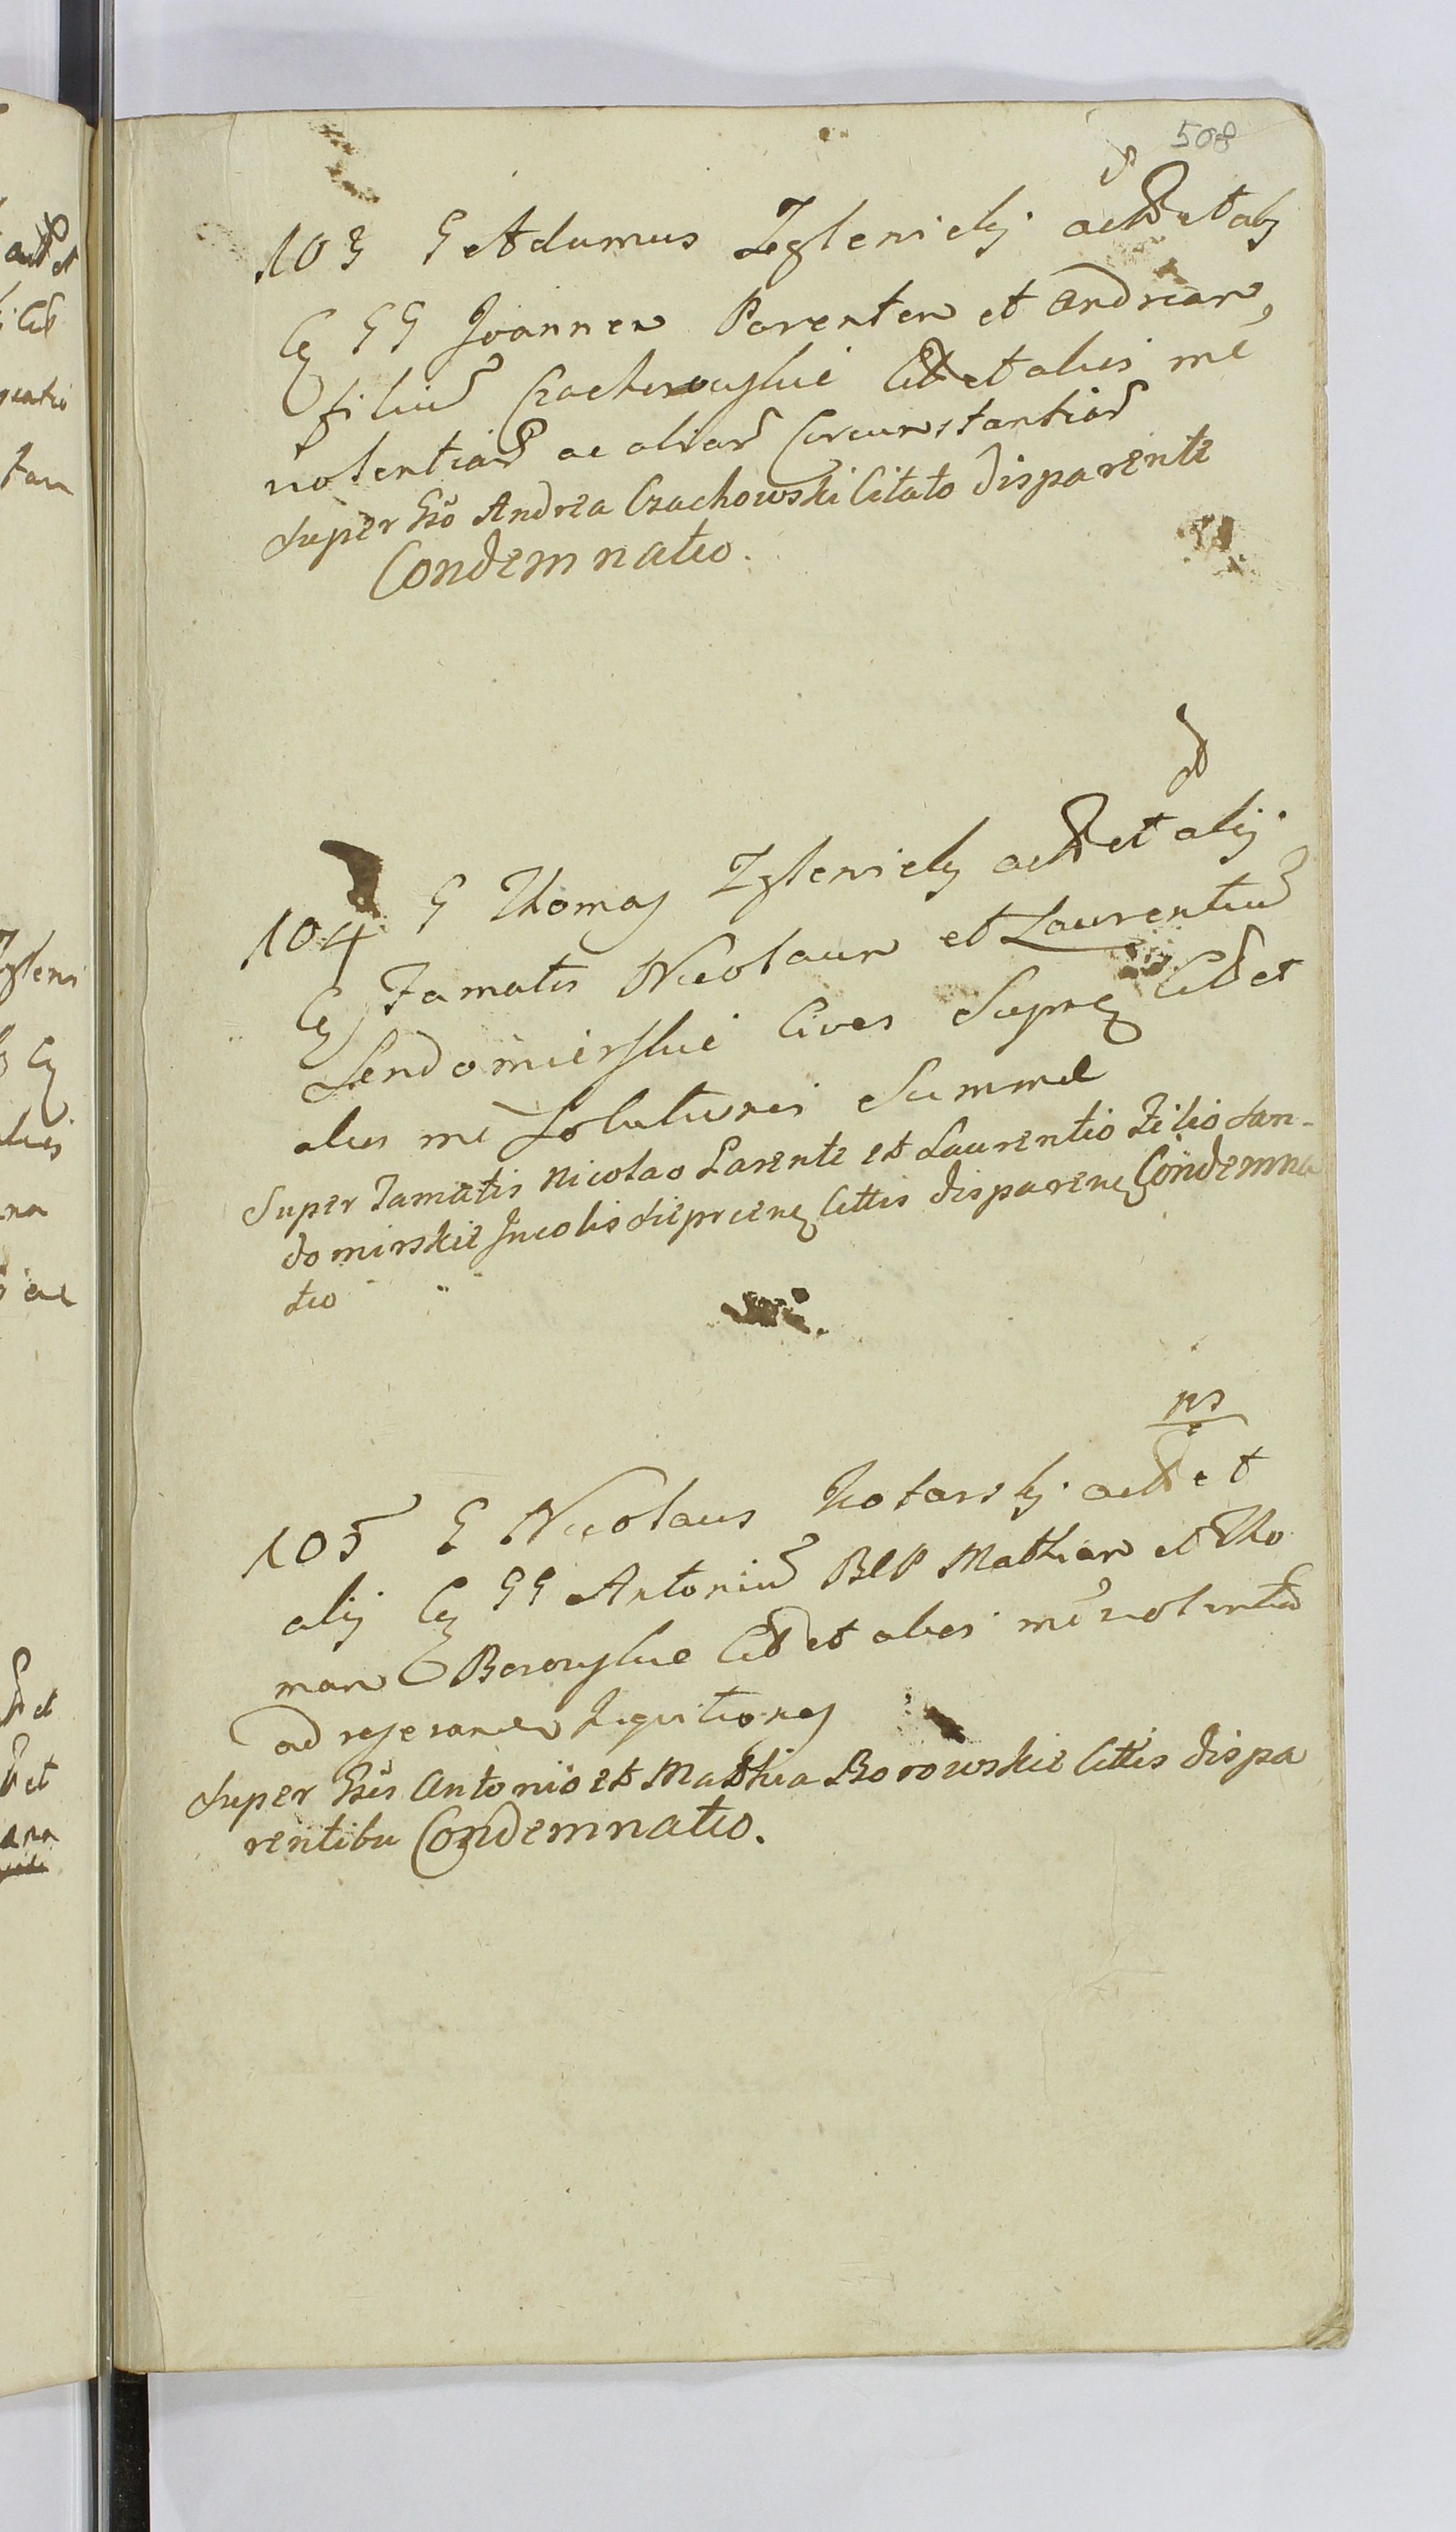 508
103 G Adamus Zglenicky act et aly
C GG Joannem Parentem et Andream
filiu Czachowskie Cit et alus me
uolentiar ac aliar Circumstantiar
Super Gso Andrea Czachowski Citato disparente
Condemnatio.
104 G Thomas Zglenicky act et alij
C Famatis Nicolaum et Laurentiu
Sendomierskie Cives Supre Cit et
alus me Solutionis Summe
Super Famatis Nicolao Parente et Laurentio Filio San-
domirskie Incolis Cittis disparen Condemna
tio
ps
105 G Nicolaus Kotarsky act et
alij C GG Antoniu Mathiam et Tho
mam Borowskie Cit et alus me uolentia
ad
Super Gsis Antonio et Mathia Borowskie Cittis dispa
rentibu Condemnatio.